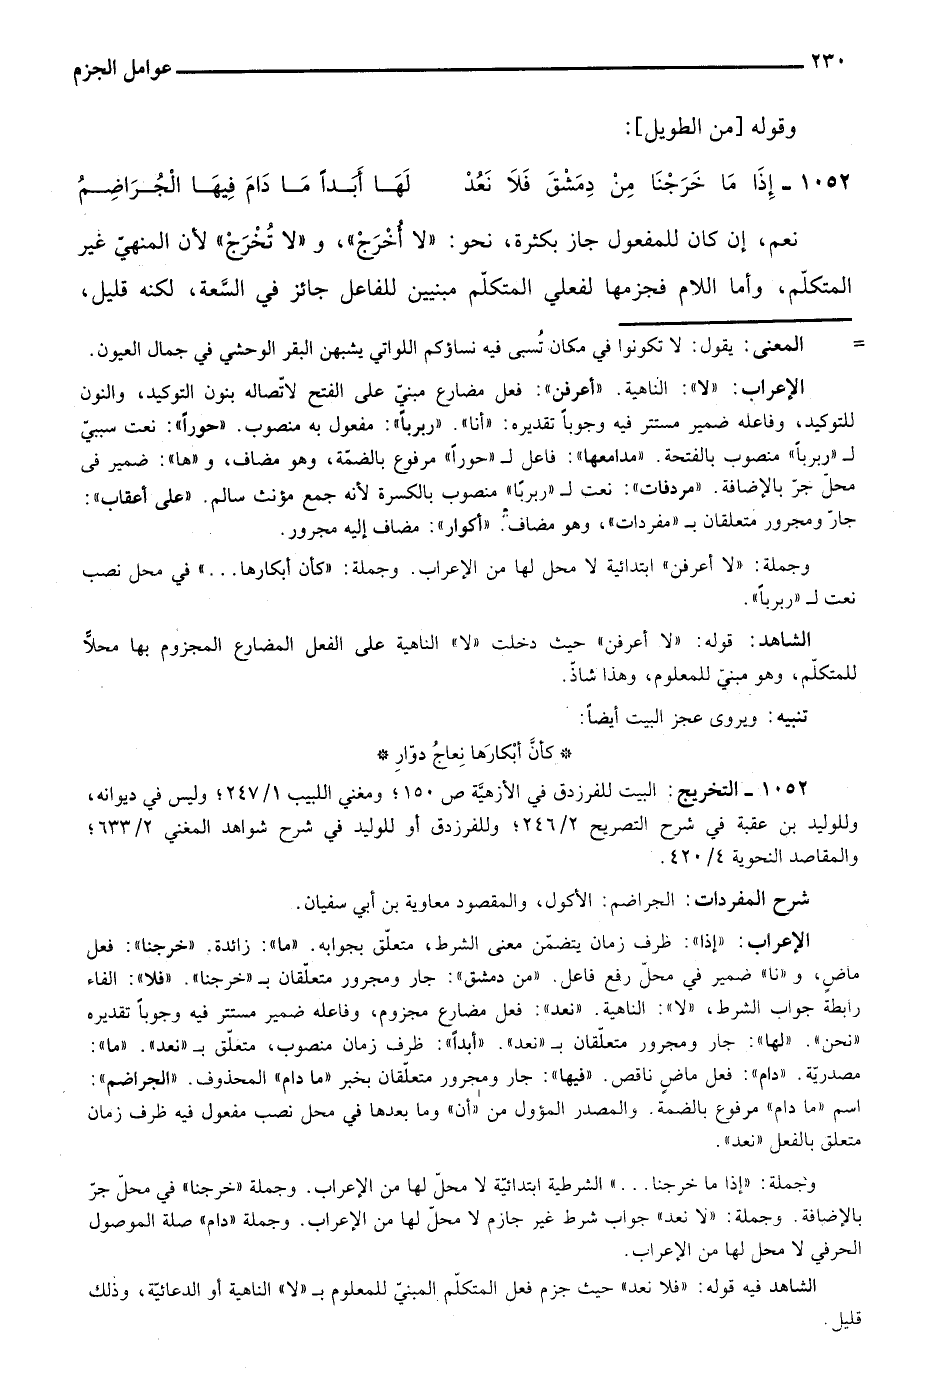 ٢٣٠ عوامل الجزم
وقوله [من الطويل]:
١٠٥٢ ـ إِذَا مَا خَرَجْنَا مِنْ دِمَشْقَ فَلَا نَعُدْ لَهَا أَبَداً مَا دَامَ فِيهَا الْجُرَاضِمُ
نعم، إن كان للمفعول جاز بكثرة، نحو: «لا أُخْرَجْ»، و «لا تُخْرَجْ» لأن المنهيّ غير
المتكلّم، وأما اللام فجزمها لفعلي المتكلّم مبنيين للفاعل جائز في السَّعة، لكنه قليل،
= المعنى: يقول: لا تكونوا في مكان تُسبى فيه نساؤكم اللواتي يشبهن البقر الوحشي في جمال العيون.
الإعراب: «لا»: الناهية. «أعرفن»: فعل مضارع مبنيّ على الفتح لاتّصاله بنون التوكيد، والنون
للتوكيد، وفاعله ضمير مستتر فيه وجوباً تقديره: «أنا». «ربرباً»: مفعول به منصوب. «حوراً»: نعت سببيّ
لـ «ربرباً» منصوب بالفتحة. «مدامعها»: فاعل لـ «حوراً» مرفوع بالضمّة، وهو مضاف، و «ها»: ضمير في
محلّ جرّ بالإضافة. «مردفات»: نعت لـ «ربربًا» منصوب بالكسرة لأنه جمع مؤنث سالم. «على أعقاب»:
جارّ ومجرور متعلقان بـ «مفردات»، وهو مضاف. «أكوار»: مضاف إليه مجرور.
وجملة: «لا أعرفن» ابتدائية لا محل لها من الإعراب. وجملة: «كأن أبكارها...» في محل نصب
نعت لـ «ربرباً».
الشاهد: قوله: «لا أعرفن» حيث دخلت «لا» الناهية على الفعل المضارع المجزوم بها محلاًّ
للمتكلّم، وهو مبنيّ للمعلوم، وهذا شاذّ.
تنبيه: ويروى عجز البيت أيضاً:
* كأنَّ أبْكارَها نِعاجُ دوّارِ *
١٠٥٢ ـ التخريج: البيت للفرزدق في الأزهيَّة ص ١٥٠؛ ومغني اللبيب ٢٤٧/١؛ وليس في ديوانه،
وللوليد بن عقبة في شرح التصريح ٢٤٦/٢؛ وللفرزدق أو للوليد في شرح شواهد المغني ٦٣٣/٢؛
والمقاصد النحوية ٤٢٠/٤.
شرح المفردات: الجراضم: الأكول، والمقصود معاوية بن أبي سفيان.
الإعراب: «إذا»: ظرف زمان يتضمّن معنى الشرط، متعلّق بجوابه. «ما»: زائدة. «خرجنا»: فعل
ماضٍ، و «نا» ضمير في محلّ رفع فاعل. «من دمشق»: جار ومجرور متعلّقان بـ «خرجنا». «فلا»: الفاء
رابطة جواب الشرط، «لا»: الناهية. «نعد»: فعل مضارع مجزوم، وفاعله ضمير مستتر فيه وجوباً تقديره
«نحن». «لها»: جار ومجرور متعلّقان بـ «نعد». «أبداً»: ظرف زمان منصوب، متعلّق بـ «نعد». «ما»:
مصدريّة. «دام»: فعل ماضٍ ناقص. «فيها»: جار ومجرور متعلّقان بخبر «ما دام» المحذوف. «الجراضم»:
اسم «ما دام» مرفوع بالضمة. والمصدر المؤول من «أن» وما بعدها في محل نصب مفعول فيه ظرف زمان
متعلق بالفعل «نعد».
وجملة: «إذا ما خرجنا...» الشرطية ابتدائيّة لا محلّ لها من الإعراب. وجملة «خرجنا» في محلّ جرّ
بالإضافة. وجملة: «لا نعد» جواب شرط غير جازم لا محلّ لها من الإعراب. وجملة «دام» صلة الموصول
الحرفي لا محل لها من الإعراب.
الشاهد فيه قوله: «فلا نعد» حيث جزم فعل المتكلّم المبنيّ للمعلوم بـ «لا» الناهية أو الدعائيّة، وذلك
قليل.